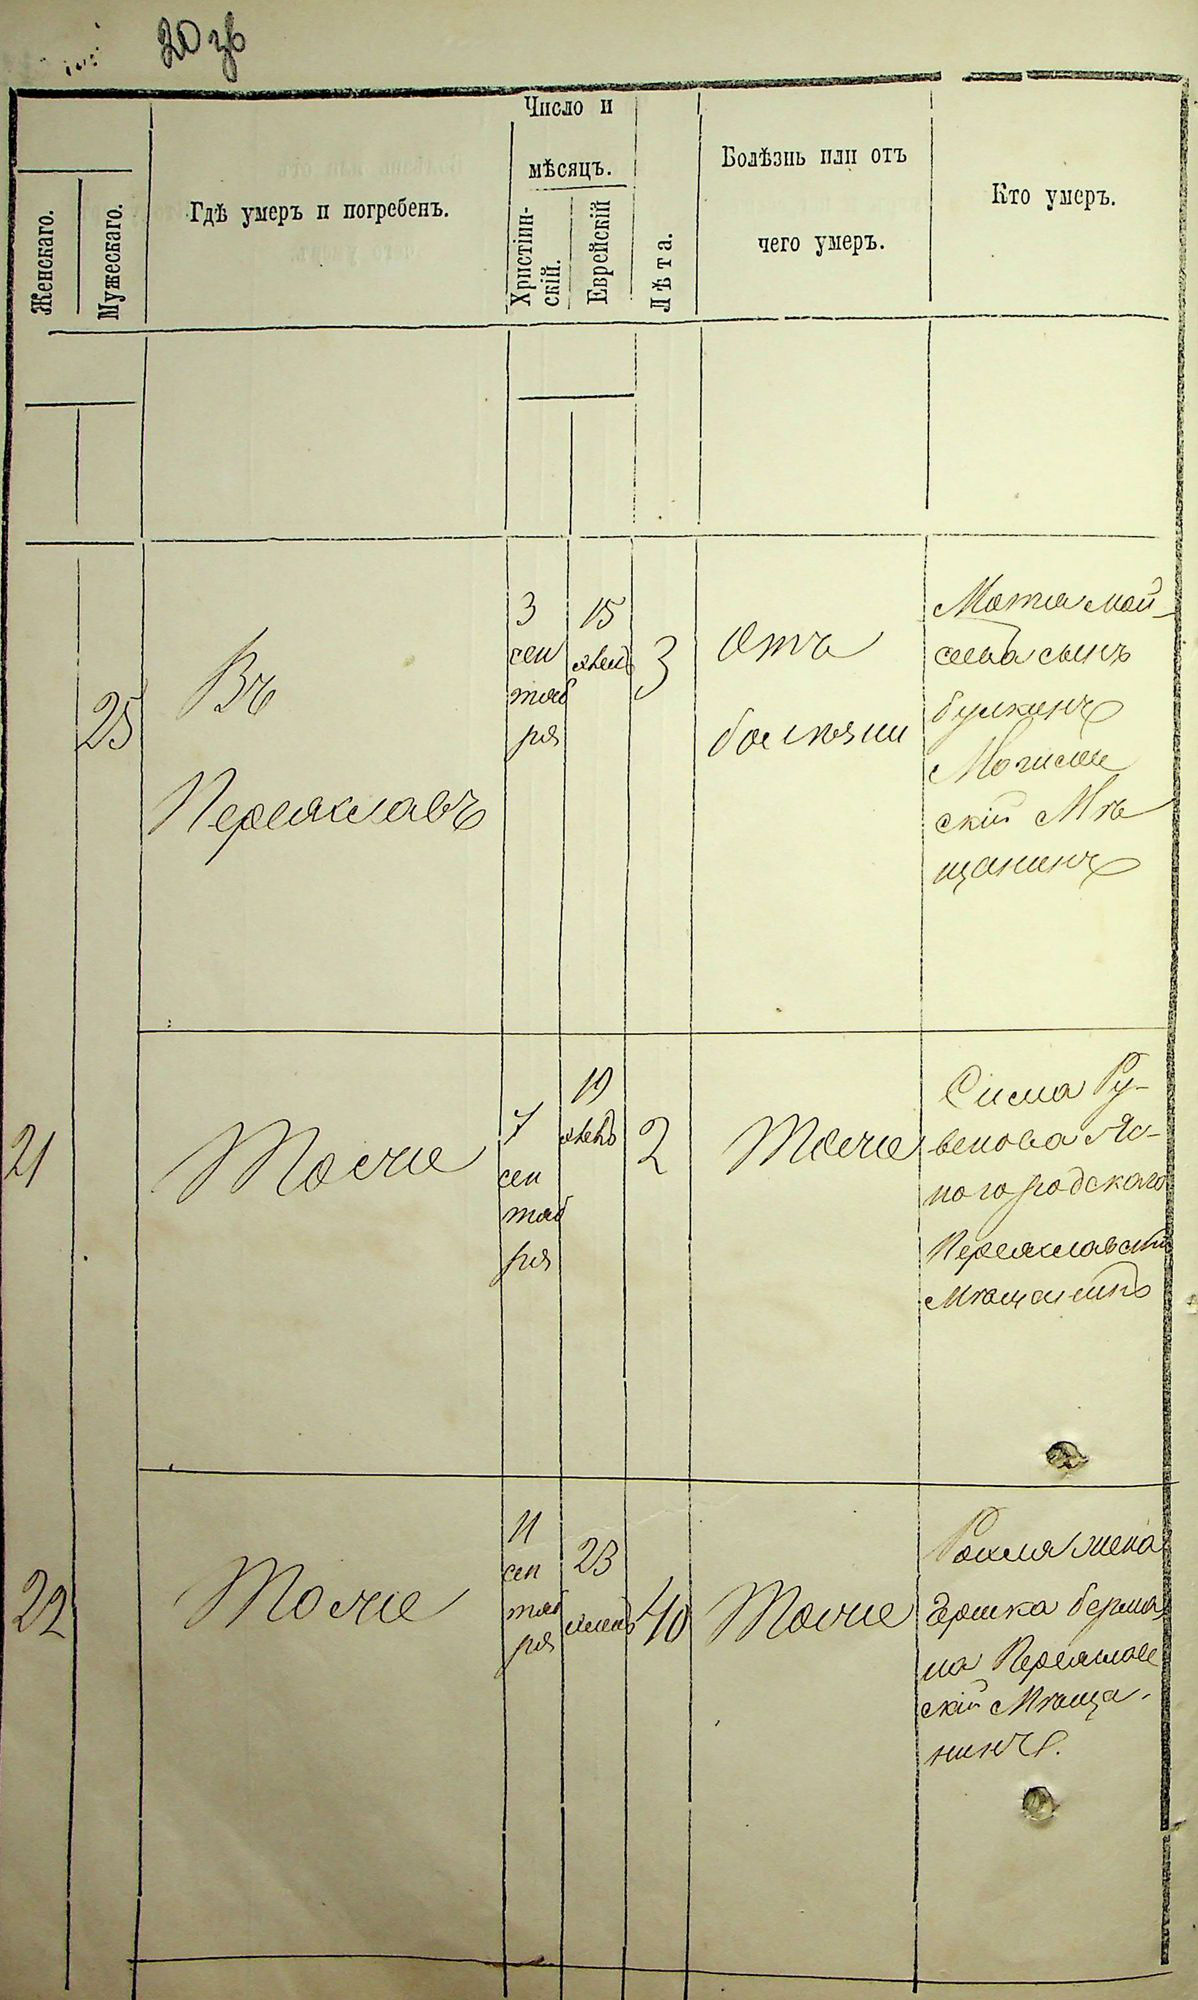 20 зв
Женскаго.
Мужескаго.
Гдѣ умеръ и погребенъ.
Число и
мѣсяцъ.
Христіян-
скій.
Еврейскій
Лѣта.
Болѣзнь или отъ
чего умеръ.
Кто умеръ.
25
Въ
Переяславъ
3
сен
тяб
ря
15
3
Отъ
болѣзни
Мотя мой
сына сынъ
булкинъ
скій Мѣ
щанинъ
21
Тоже
7
сен
тяб
ря
19
2
Тоже
Сима Ру-
венова Яс-
ногородскаго
Переяславскій
Мѣщанинъ
22
Тоже
11
сен
тяб
ря
23
40
Тоже
Рохля жена
Ершка берма
на Переяслав
скій Мѣща-
нинъ.